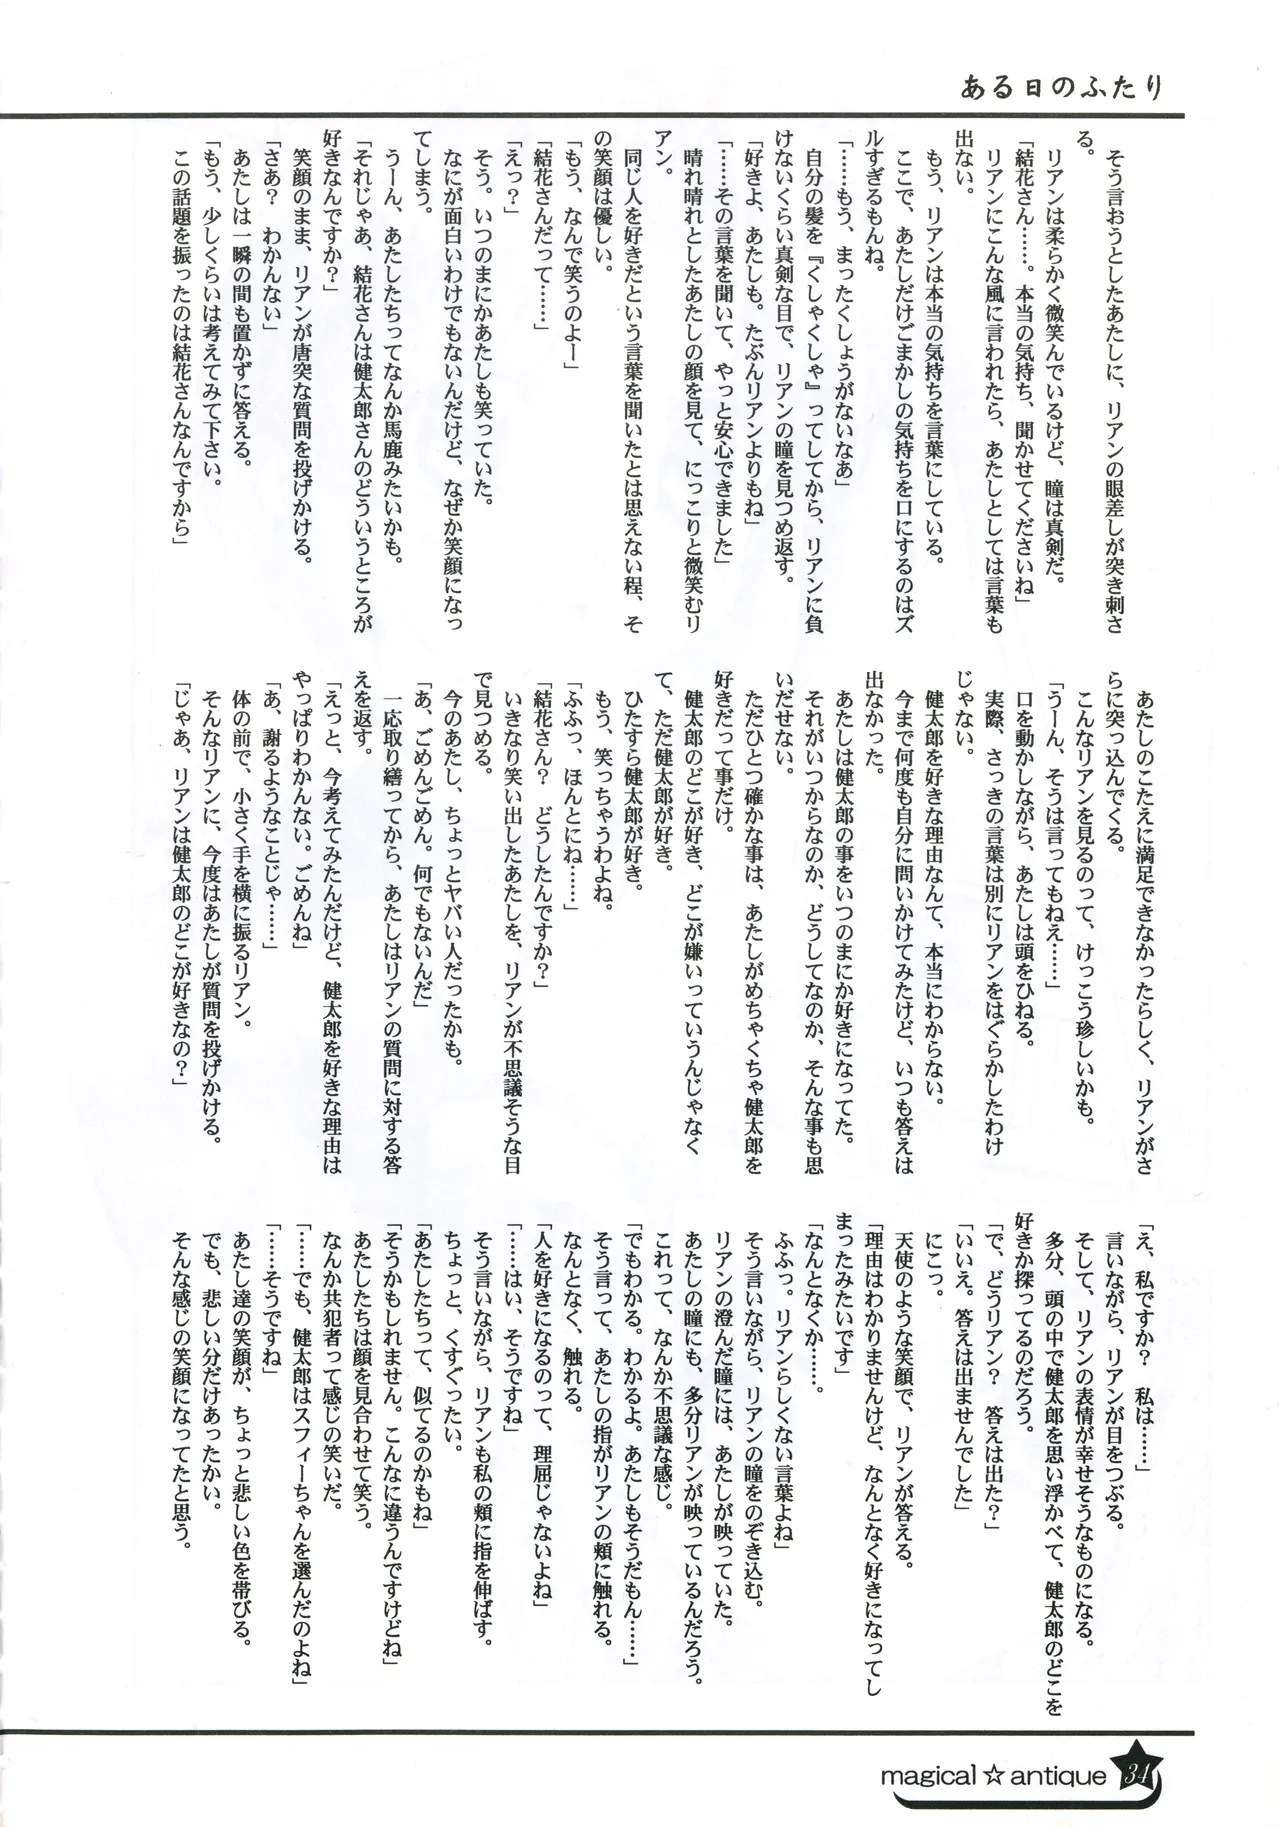 ある日のふたり
　そう言おうとしたあたしに、リアンの眼差しが突き刺さ
る。
　リアンは柔らかく微笑んでいるけど、瞳は真剣だ。
「結花さん……。本当の気持ち、聞かせてくださいね」
　リアンにこんな風に言われたら、あたしとしては言葉も
出ない。
　もう、リアンは本当の気持ちを言葉にしている。
　ここで、あたしだけごまかしの気持ちを口にするのはズ
ルすぎるもんね。
「……もう、まったくしょうがないなあ」
　自分の髪を『くしゃくしゃ』ってしてから、リアンに負
けないくらい真剣な目で、リアンの瞳を見つめ返す。
「好きよ、あたしも。たぶんリアンよりもね」
「……その言葉を聞いて、やっと安心できました」
　晴れ晴れとしたあたしの顔を見て、にっこりと微笑むリ
アン。
　同じ人を好きだという言葉を聞いたとは思えない程、そ
の笑顔は優しい。
「もう、なんで笑うのよー」
「結花さんだって……」
「えっ？」
　そう。いつのまにかあたしも笑っていた。
　なにが面白いわけでもないんだけど、なぜか笑顔になっ
てしまう。
　うーん、あたしたちってなんか馬鹿みたいかも。
「それじゃあ、結花さんは健太郎さんのどういうところが
好きなんですか？」
　笑顔のまま、リアンが唐突な質問を投げかける。
「さあ？　わかんない」
　あたしは一瞬の間も置かずに答える。
「もう、少しくらいは考えてみて下さい。
　この話題を振ったのは結花さんなんですから」
　あたしのこたえに満足できなかったらしく、リアンがさ
らに突っ込んでくる。
　こんなリアンを見るのって、けっこう珍しいかも。
「うーん、そうは言ってもねえ……」
　口を動かしながら、あたしは頭をひねる。
　実際、さっきの言葉は別にリアンをはぐらかしたわけ
じゃない。
　健太郎を好きな理由なんて、本当にわからない。
　今まで何度も自分に問いかけてみたけど、いつも答えは
出なかった。
　あたしは健太郎の事をいつのまにか好きになってた。
　それがいつからなのか、どうしてなのか、そんな事も思
いだせない。
　ただひとつ確かな事は、あたしがめちゃくちゃ健太郎を
好きだって事だけ。
　健太郎のどこが好き、どこが嫌いっていうんじゃなく
て、ただ健太郎が好き。
　ひたすら健太郎が好き。
　もう、笑っちゃうわよね。
「ふふっ、ほんとにね……」
「結花さん？　どうしたんですか？」
　いきなり笑い出したあたしを、リアンが不思議そうな目
で見つめる。
　今のあたし、ちょっとヤバい人だったかも。
「あ、ごめんごめん。何でもないんだ」
　一応取り繕ってから、あたしはリアンの質問に対する答
えを返す。
「えっと、今考えてみたんだけど、健太郎を好きな理由は
やっぱりわかんない。ごめんね」
「あ、謝るようなことじゃ……」
　体の前で、小さく手を横に振るリアン。
　そんなリアンに、今度はあたしが質問を投げかける。
「じゃあ、リアンは健太郎のどこが好きなの？」
「え、私ですか？　私は……」
　言いながら、リアンが目をつぶる。
　そして、リアンの表情が幸せそうなものになる。
　多分、頭の中で健太郎を思い浮かべて、健太郎のどこを
好きか探ってるのだろう。
「で、どうリアン？　答えは出た？」
「いいえ。答えは出ませんでした」
　にこっ。
　天使のような笑顔で、リアンが答える。
「理由はわかりませんけど、なんとなく好きになってし
まったみたいです」
「なんとなくか……。
　ふふっ。リアンらしくない言葉よね」
　そう言いながら、リアンの瞳をのぞき込む。
　リアンの澄んだ瞳には、あたしが映っていた。
　あたしの瞳にも、多分リアンが映っているんだろう。
　これって、なんか不思議な感じ。
「でもわかる。わかるよ。あたしもそうだもん……」
　そう言って、あたしの指がリアンの頬に触れる。
　なんとなく、触れる。
「人を好きになるのって、理屈じゃないよね」
「……はい、そうですね」
　そう言いながら、リアンも私の頬に指を伸ばす。
　ちょっと、くすぐったい。
「あたしたちって、似てるのかもね」
「そうかもしれません。こんなに違うんですけどね」
　あたしたちは顔を見合わせて笑う。
　なんか共犯者って感じの笑いだ。
「……でも、健太郎はスフィーちゃんを選んだのよね」
「……そうですね」
　あたし達の笑顔が、ちょっと悲しい色を帯びる。
　でも、悲しい分だけあったかい。
　そんな感じの笑顔になってたと思う。
magical☆antique 34